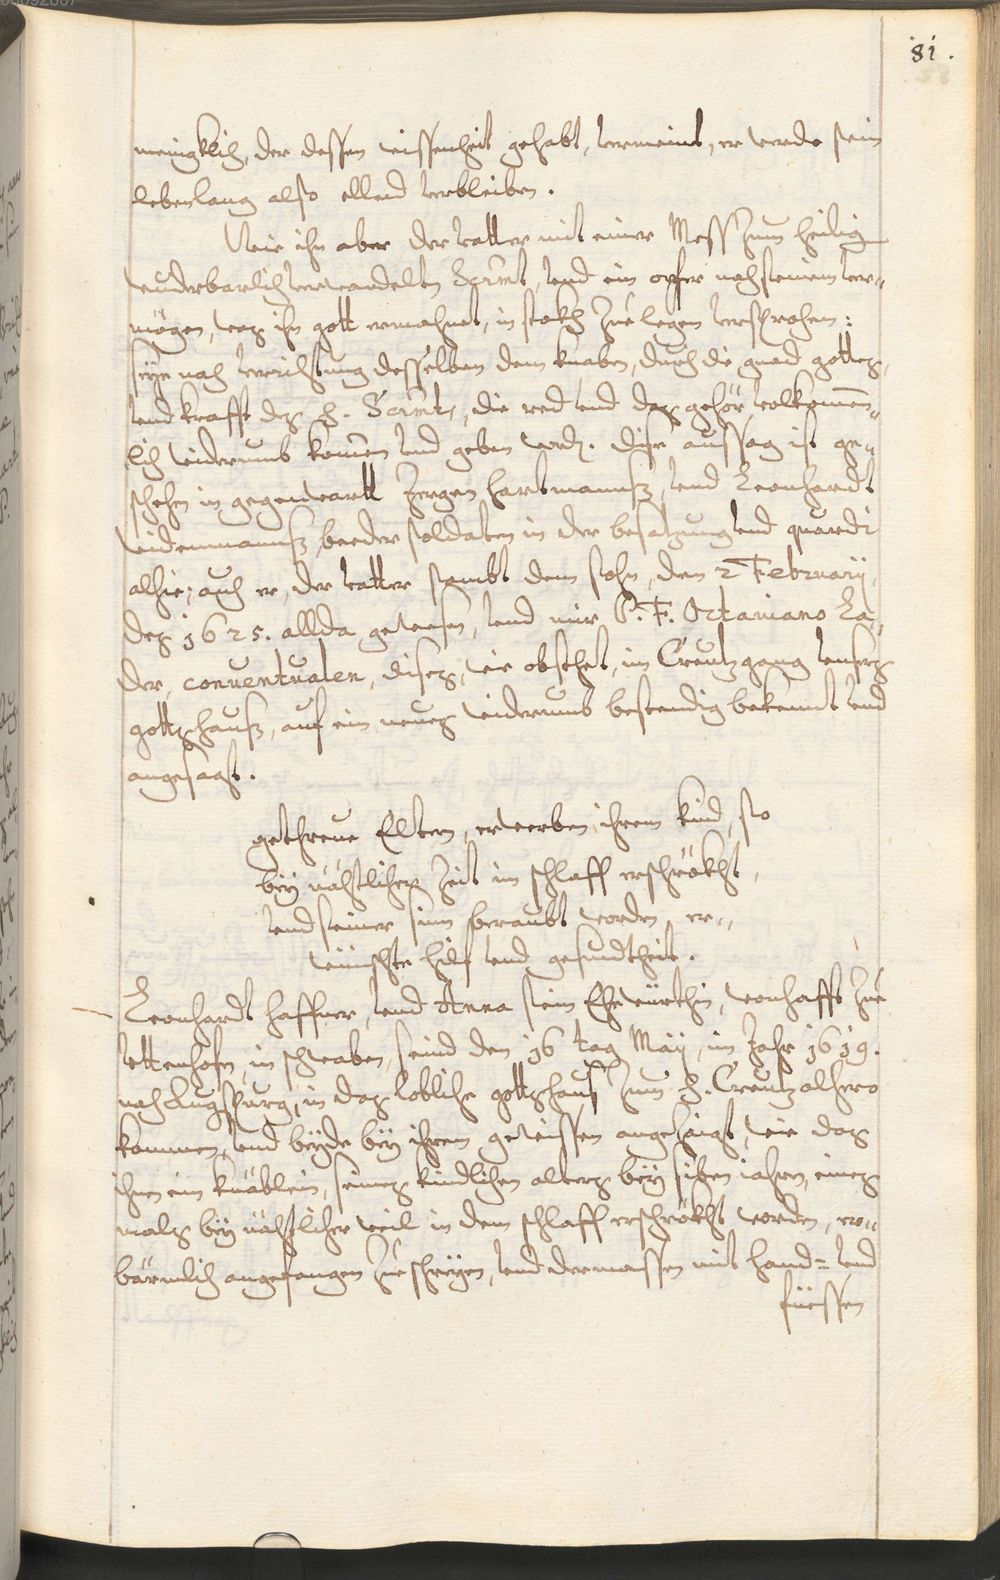 81.
menigklich, der dessen wissenheit gehabt, vermeint, er werde sein
lebenlang also ellend verbleiben.
Wie ihn aber der vatter mit einer Mess zum heilig
wunderbarlich verwandelten Sacrament, vnd ein opfer nach seinem ver„
mögen, was ihn gott ermahnet, in stokh zue legen versprochen:
seye nach verrichtung desselben dem knaben, durch die gnad gottes,
vnd krafft des h. Sacraments, die red vnd das gehör volkomen„
lich widerumb komen vnd geben word. dise aussag ist ge„
schehen in gegenwartt Jergen hartmannss, vnd Leonhardt
widenmannss, beeder soldaten in der besatzung vnd quardi
alhie; auch er, der vatter sambt dem sohn, den 2 February,
des 1625. allda gewesen, vnd mir P. F. Octaviano La„
der, conventualen, dises, wie obsthet, im Creutzgang vnsers
gottshauss, auf ein neues widerumb bestendig bekennt vnd
angesagt.
gethreue Eltern, erwerben ihrem kind, so
bey nächtlicher Zeit im schlaff erschröckht,
vnd seiner sinn beraubt worden, er„
wünschte hilf vnd gesundtheit.
Leonhardt haffner, vnd Anna sein Ehewürthin, wonhafft zue
ettenhofen, in schwaben, seind den 16 tag May, im Jahr 1619.
nach Augspurg, in das lobliche gottshauss zum h. Creutz alhero
kommen, vnd beyde bey ihrem gewissen angezaigt, wie das
ihnen ein knäblein, seines kindlichen alters bey siben jahren, eines
mals bey nächtlicher weil in dem schlaff erschröckht worden, er„
bärmlich angefangen zue schreyen, vnd dermassen mit hand= vnd
füessen